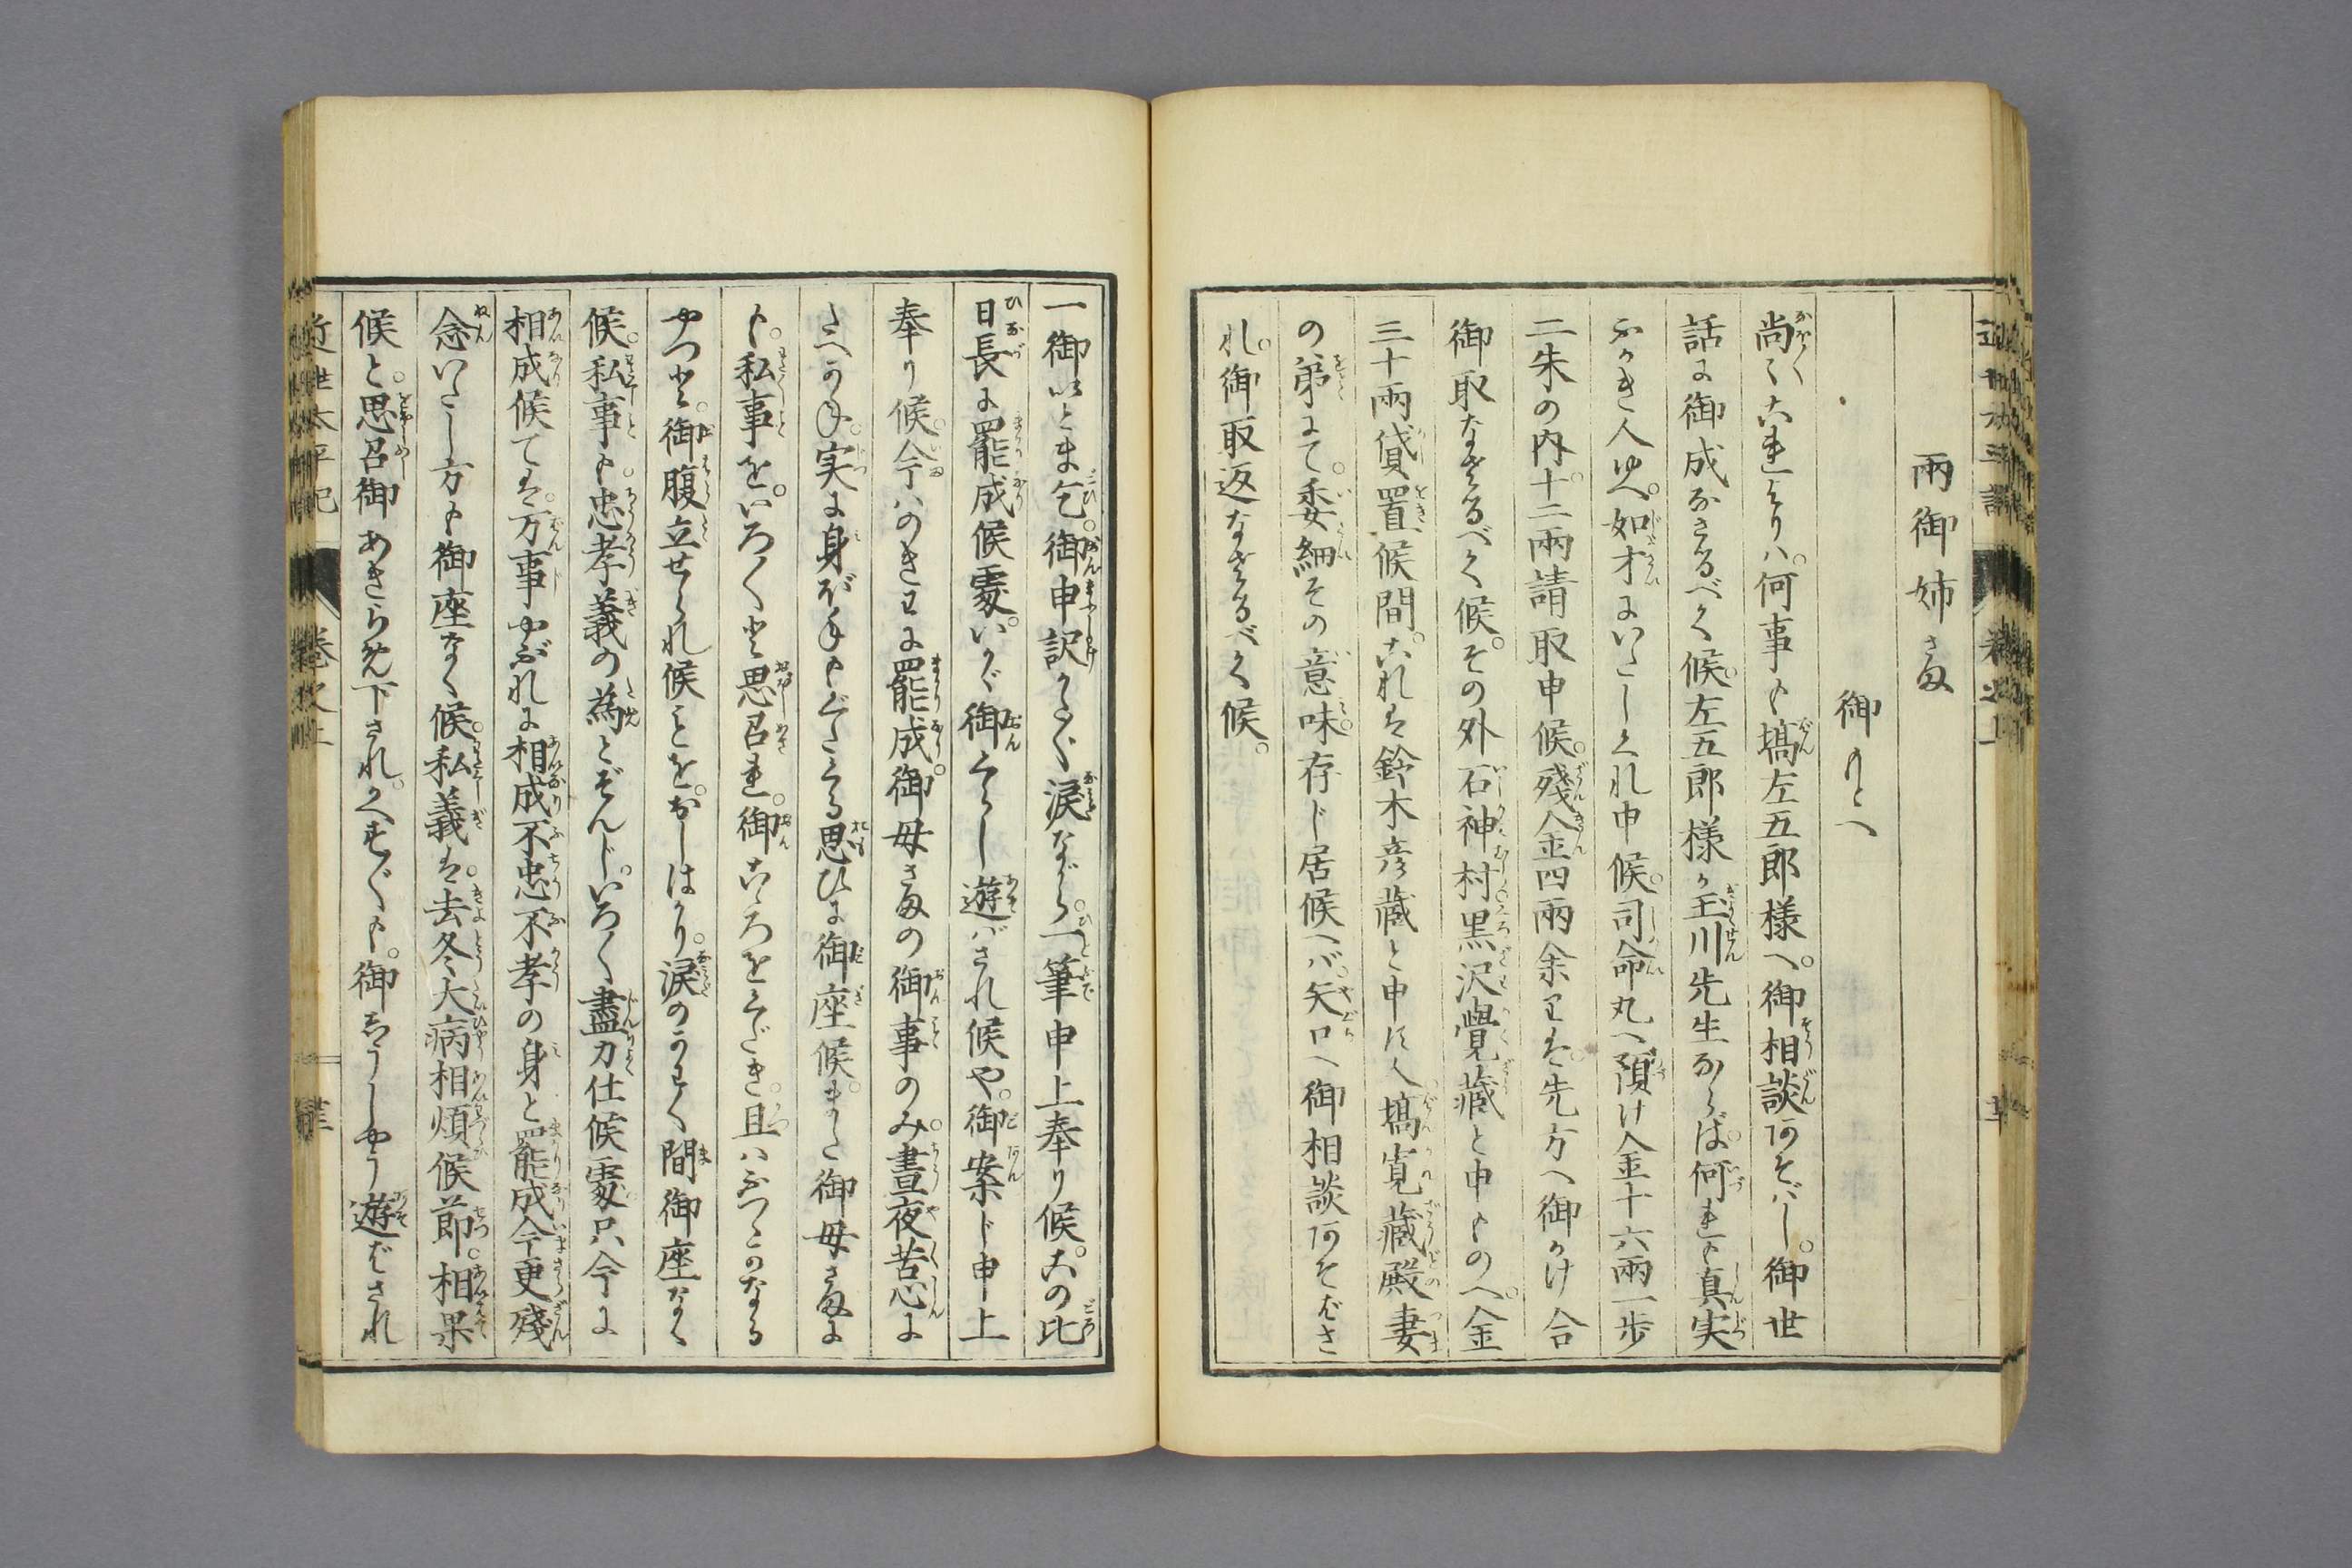 兩御姉さま
御もとへ
尚〻これよりハ。何事も塙左五郎様へ。御相談何そバし。御世
話に御成なさるべく候。左五郎様か玉川先生ならば。何れも真実
ふかき人ゆへ。如才ないたしくれ申候。司命丸へ預け金十六兩一歩
二朱の内。十二兩請取申候。殘金四兩余りは。先方へ御かけ合
御取なさるべく候。その外石神村。黒沢覺藏と申ものへ。金
三十兩貸置候間。これは鈴木彦藏と申候人。塙寛藏殿妻
の弟にて。委細その意味。存じ居候へバ。矢口へ御相談何そばさ
れ。御取返なさるべく候。
一御いとま乞。御申訳かた〴〵涙ながら。一筆申上奉り候。この比
日長に罷成候處。いかゞ御くらし遊バされ候や。御案じ申上
奉り候。今ハのきわに罷成。御母さまの御事のみ。晝夜苦心に
たへかね。実に身がまもくだくる思ひに御座候。また御母さまに
も。私事を。いろ〳〵と思召れ。御こゝろをくだき。且ハふつゝかなる
やつと。御腹立せられ候ことを。おしはかり。涙のかわく間御座なく
候。私事も。忠孝義の為とぞんじ。いろ〳〵盡力仕候處只今に
相成候ては。万事やぶれに相成不忠不孝の身と罷成今更殘
念いたし方も御座なく候。私義は。去冬大病相煩候節。相果
候と。思召御あきらめ下され。くれ〴〵も。御ようじやう遊ばされ
近世太平記
卷次上